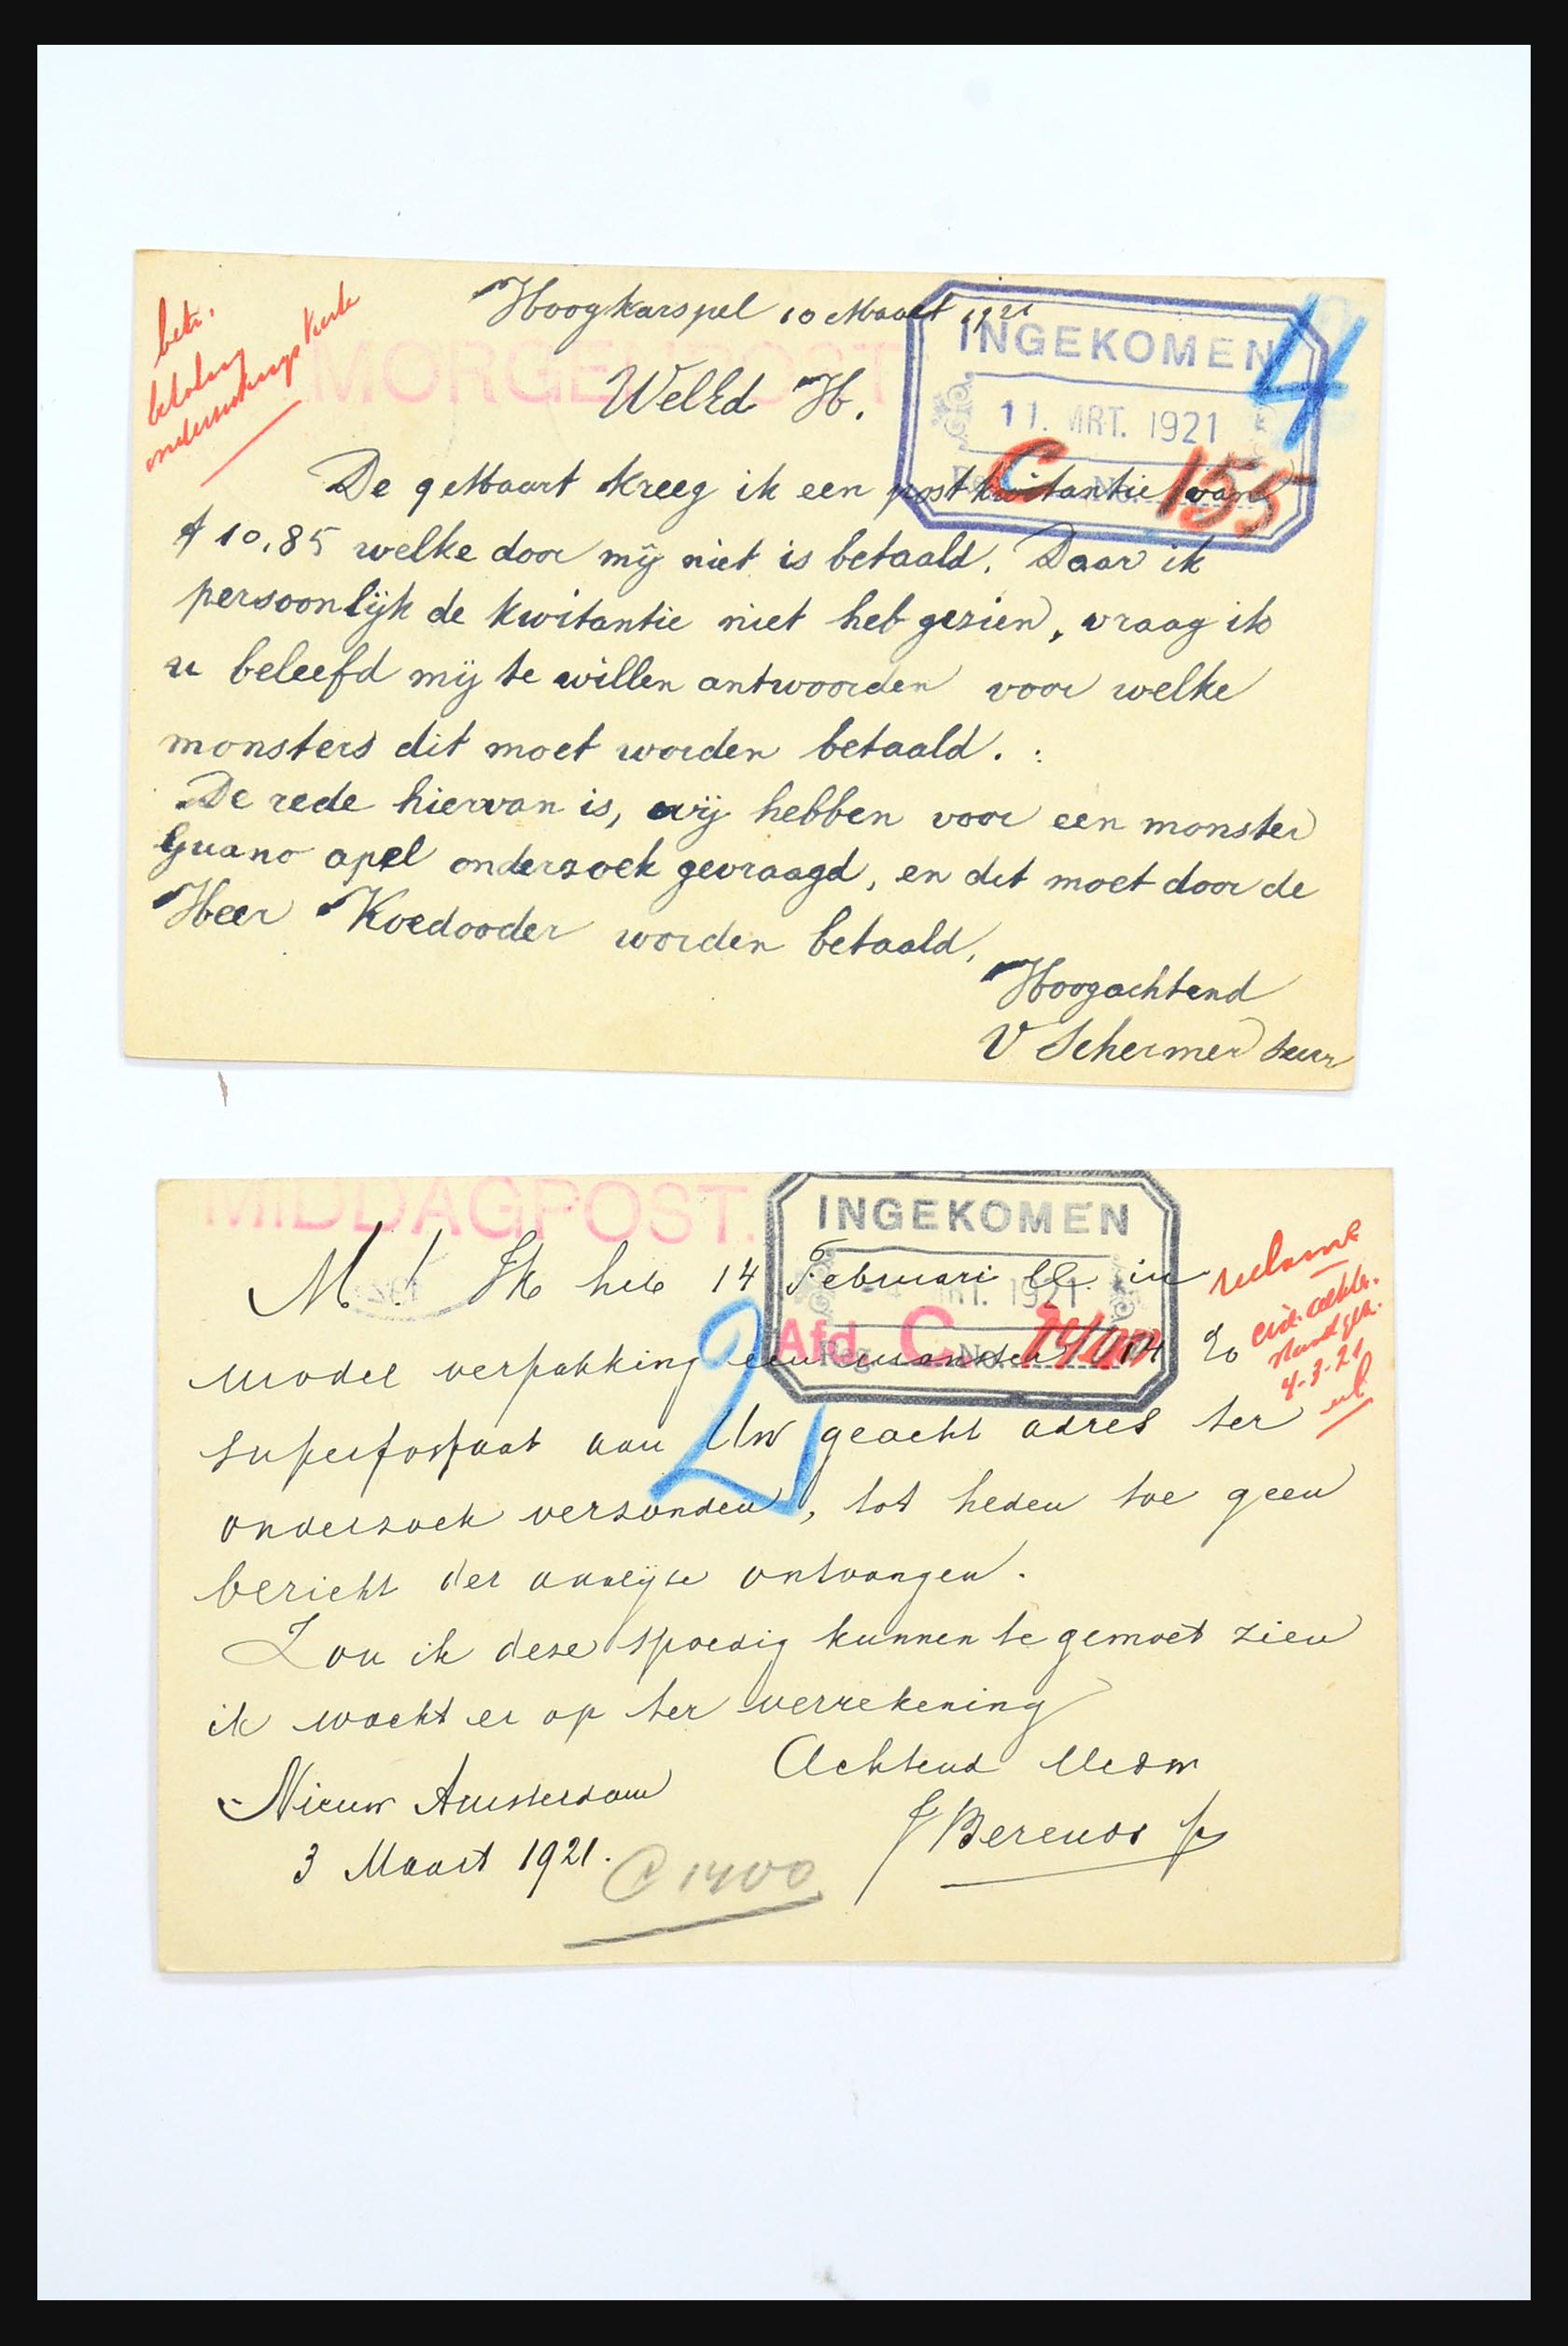 betr.
betaling
onderzoekings kosten
Hoogkarspel 10 Maart 1921
MORGENPOST
INGEKOMEN
4
WelEd H.
11. MRT. 1921
C 155
De 9 Maart kreeg ik een postkwitantie van
f 10,85 welke door mij niet is betaald. Daar ik
persoonlijk de kwitantie niet heb gezien, vraag ik
u beleefd mij te willen antwoorden voor welke
monsters dit moet worden betaald.
De rede hiervan is, wij hebben voor een monster
Guano apel onderzoek gevraagd, en dit moet door de
Heer Koedooder worden betaald.
Hoogachtend
V Schermer
MIDDAGPOST.
INGEKOMEN
M.! Ik heb 14 Februari ll. in
MRT. 1921
Afd. C.
Reg. No.
reclame
4-3-21
2
model verpakking een monster 14 %
superfosfaat aan Uw geacht adres ter
onderzoek verzonden, tot heden toe geen
bericht der analyse ontvangen.
Zou ik deze spoedig kunnen te gemoet zien
ik wacht er op ter verrekening
Achtend
Nieuw Amsterdam
J Berends
3 Maart 1921.
C 1400